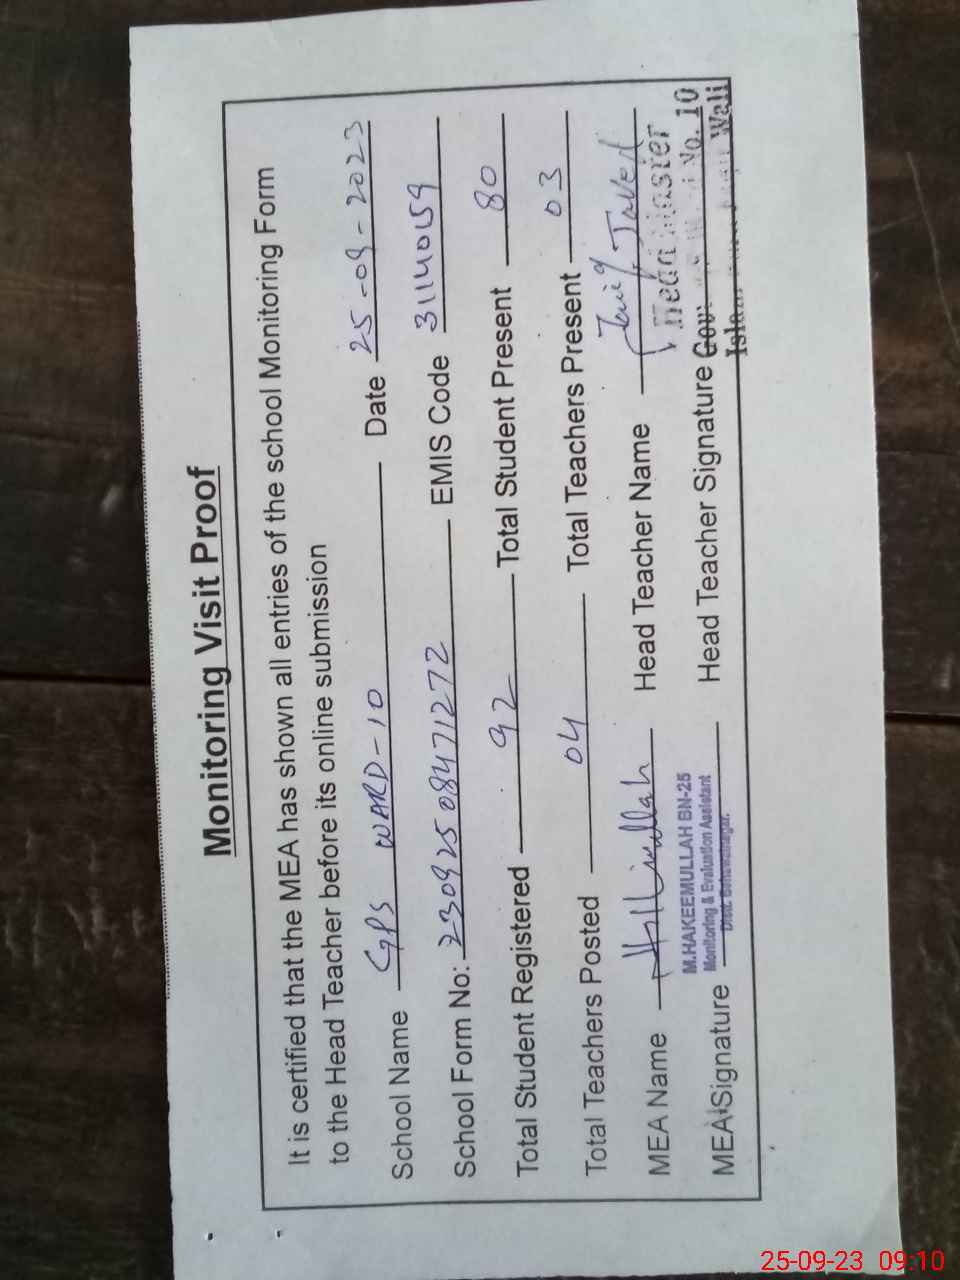 Monitoring Visit Proof
It is certified that the MEA has shown all entries of the school Monitoring Form
to the Head Teacher before its online submission
School Name GPS WARD-10 Date 25-09-2023
School Form No: 23092508471272 EMIS Code 31140159
Total Student Registered 92 Total Student Present 80
Total Teachers Posted 04 Total Teachers Present 03
MEA Name Head Teacher Name Javed
M.HAKEEMULLAH BN-25
Monitoring & Evaluation Assistant
Distt. Bahawalnagar.
Head Master
MEA Signature Head Teacher Signature Govt No. 10
Wali
25-09-23 09:10